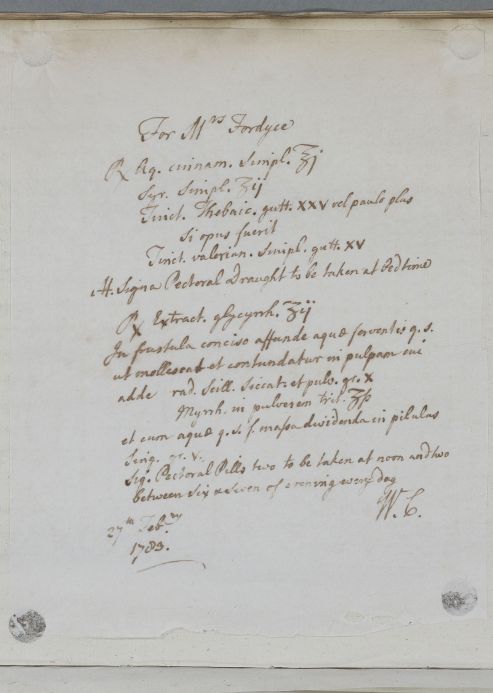 For Mrs Fordyce
℞ Aq. cinnam. Simpl. ℥j
Syr. Simpl. ʒij
Tinct. Thebaic. gutt. XXV vel paulo plus
Si opus fuerit
Tinct. valerian. Simpl. gutt. XV
M. Signa Pectoral Draught to be taken at Bedtime
℞ Extract. glycyrrh. ʒij
In frustula conciso affunde aquæ ferventis q. s.
ut mollescat et contundatur in pulpam cui
adde rad. Scill. Siccat: et pulv. gr. X
Myrrh. in pulverem trit. ʒß
et cum aquæ q. s. f. massa dividenda in pilulas
Sing. gr. V.
Sig. Pectoral Pills two to be taken at noon and two
between Six & Seven of evening every day
W. C.
27th Febry
1783.